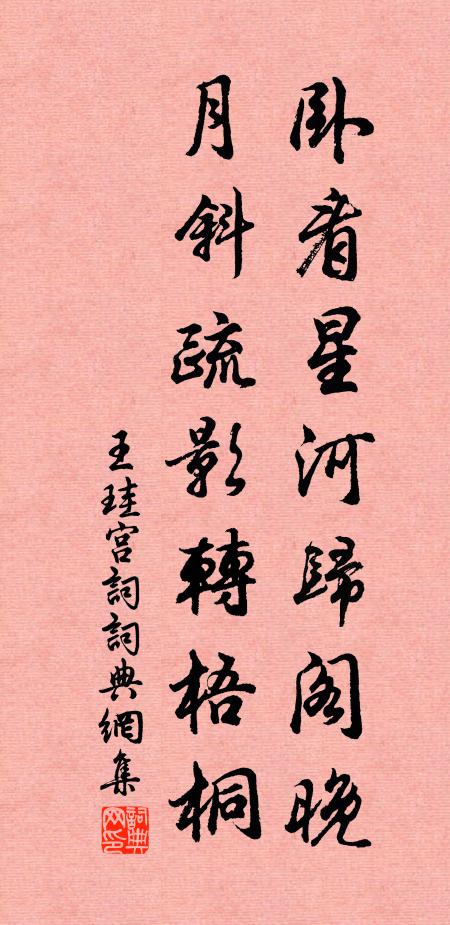 卧看星河歸閣晚
月斜疏影轉梧桐
王珪宫詞詞典網集
詞典网印